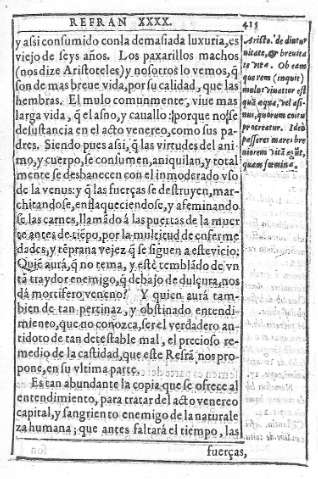 REFRAN XXXX.
415
y assi consumido con la demasiada luxuria, es
viejo de seys años. Los paxarillos machos
(nos dize Aristoteles) y nosotros lo vemos, q̃
son de mas breue vida, por su calidad, que las
hembras. El mulo comunmente, viue mas
larga vida, q̃ el asno, y cauallo: porque no se
desustancia en el acto venereo, como sus pa-
dres. Siendo pues assi, q̃ las virtudes del ani-
mo, y cuerpo, se consumen, aniquilan, y total
mente se desbanecen con el inmoderado vso
de la venus: y q̃ las fuerças se destruyen, mar-
chitandose, enflaqueciendose, y afeminando
se, las carnes, llamãdo à las puertas de la muer
te antes de tiẽpo, por la multitud de enferme
dades, y tẽprana vejez q̃ se siguen a este vicio;
Quiẽ aurà, q̃ no tema, y estè temblãdo de vn
tã traydor enemigo, q̃ debajo de dulçura, nos
dà mortifero veneno? Y quien aurà tam-
bien de tan pertinaz, y obstinado entendi-
miento, que no conozca, ser el verdadero an-
tidoto de tan detestable mal, el precioso re-
medio de la castidad, que este Refrã nos pro-
pone, en su vltima parte.
Es tan abundante la copia que se ofrece al
entendimiento, para tratar del acto venereo
capital, y sangriento enemigo de la naturale
za humana; que antes faltarà el tiempo, las
fuerças,
Aristo. de diutur
nitate, & breuita
te vitæ. Ob eam
quorem (inquit)
mulus viuatior est
quã equa, vel asi-
nus, quorum coitu
procreatur. Ideò
passeres mares bre
niorem vitã agũt,
quam fœmina.